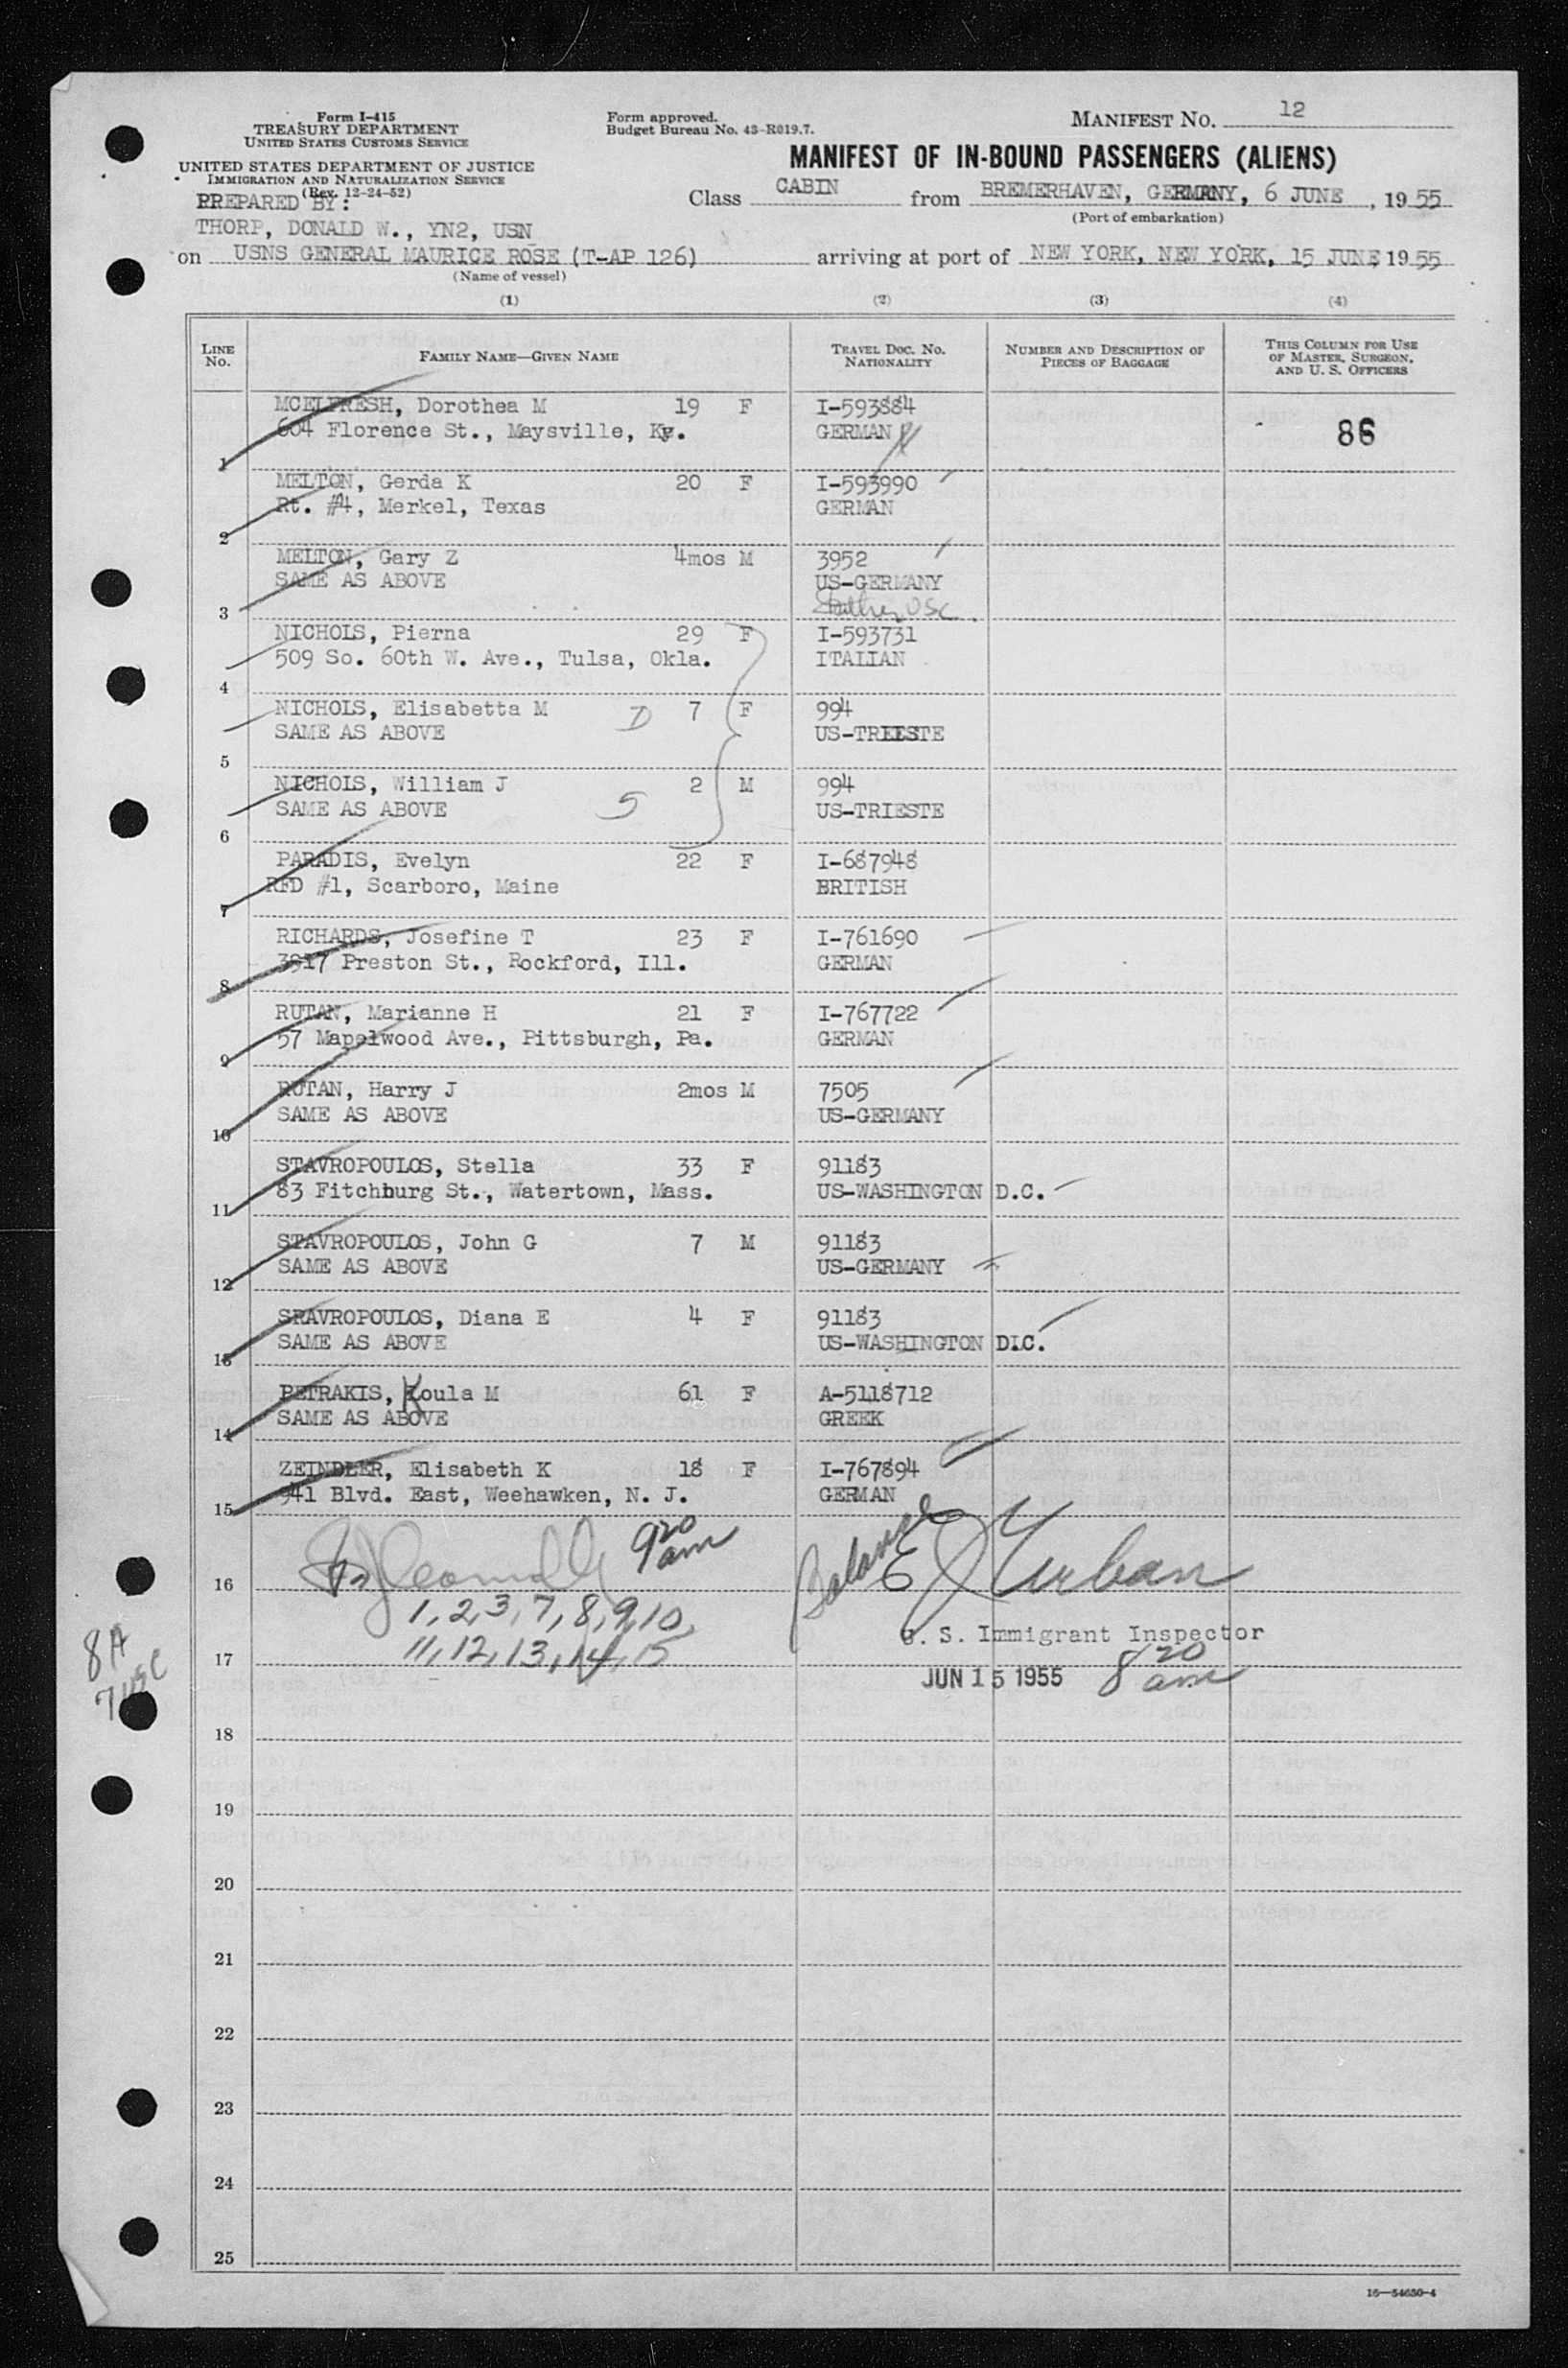 Form I-415
TREASURY DEPARTMENT
UNITED STATES CUSTOMS SERVICE
UNITED STATES DEPARTMENT OF JUSTICE
IMMIGRATION AND NATURALIZATION SERVICE
(Rev. 12-24-52)
PREPARED BY:
THORP, DONALD W., YN2, USN
Form approved.
Budget Bureau No. 43-R019.7.
MANIFEST NO. 12
MANIFEST OF IN-BOUND PASSENGERS (ALIENS)
Class CABIN from BREMERHAVEN, GERMANY, 6 JUNE, 1955
(Port of embarkation)
on USNS GENERAL MAURICE ROSE (T-AP 126) arriving at port of NEW YORK, NEW YORK, 15 JUNE 1955
(Name of vessel)
(1) (2) (3) (4)
LINE NO. FAMILY NAME—GIVEN NAME TRAVEL DOC. NO. NATIONALITY NUMBER AND DESCRIPTION OF PIECES OF BAGGAGE THIS COLUMN FOR USE OF MASTER, SURGEON, AND U. S. OFFICERS
MCELFRESH, Dorothea M 19 F I-593884
604 Florence St., Maysville, Ky. GERMAN 86
1
MELTON, Gerda K 20 F I-593990
Rt. #4, Merkel, Texas GERMAN
2
MELTON, Gary Z 4mos M 3952
SAME AS ABOVE US-GERMANY
3 Father USC
NICHOLS, Pierna 29 F I-593731
509 So. 60th W. Ave., Tulsa, Okla. ITALIAN
4
NICHOLS, Elisabetta M D 7 F 994
SAME AS ABOVE US-TRIESTE
5
NICHOLS, William J 2 M 994
SAME AS ABOVE S US-TRIESTE
6
PARADIS, Evelyn 22 F I-687948
RFD #1, Scarboro, Maine BRITISH
7
RICHARDS, Josefine T 23 F I-761690
3917 Preston St., Rockford, Ill. GERMAN
8
RUTAN, Marianne H 21 F I-767722
57 Mapelwood Ave., Pittsburgh, Pa. GERMAN
9
RUTAN, Harry J 2mos M 7505
SAME AS ABOVE US-GERMANY
10
STAVROPOULOS, Stella 33 F 91183
83 Fitchburg St., Watertown, Mass. US-WASHINGTON D.C.
11
STAVROPOULOS, John G 7 M 91183
SAME AS ABOVE US-GERMANY
12
SRAVROPOULOS, Diana E 4 F 91183
SAME AS ABOVE US-WASHINGTON D.C.
13
PETRAKIS, Koula M 61 F A-5118712
SAME AS ABOVE GREEK
14
ZEINDLER, Elisabeth K 18 F I-767894
941 Blvd. East, Weehawken, N. J. GERMAN
15
9 20 am Balance E J Urban
16
1, 2, 3, 7, 8, 9, 10,
U. S. Immigrant Inspector
11, 12, 13, 14, 15
17
8A
7 USC
JUN 15 1955 8 20 am
18
19
20
21
22
23
24
25
16—54650-4